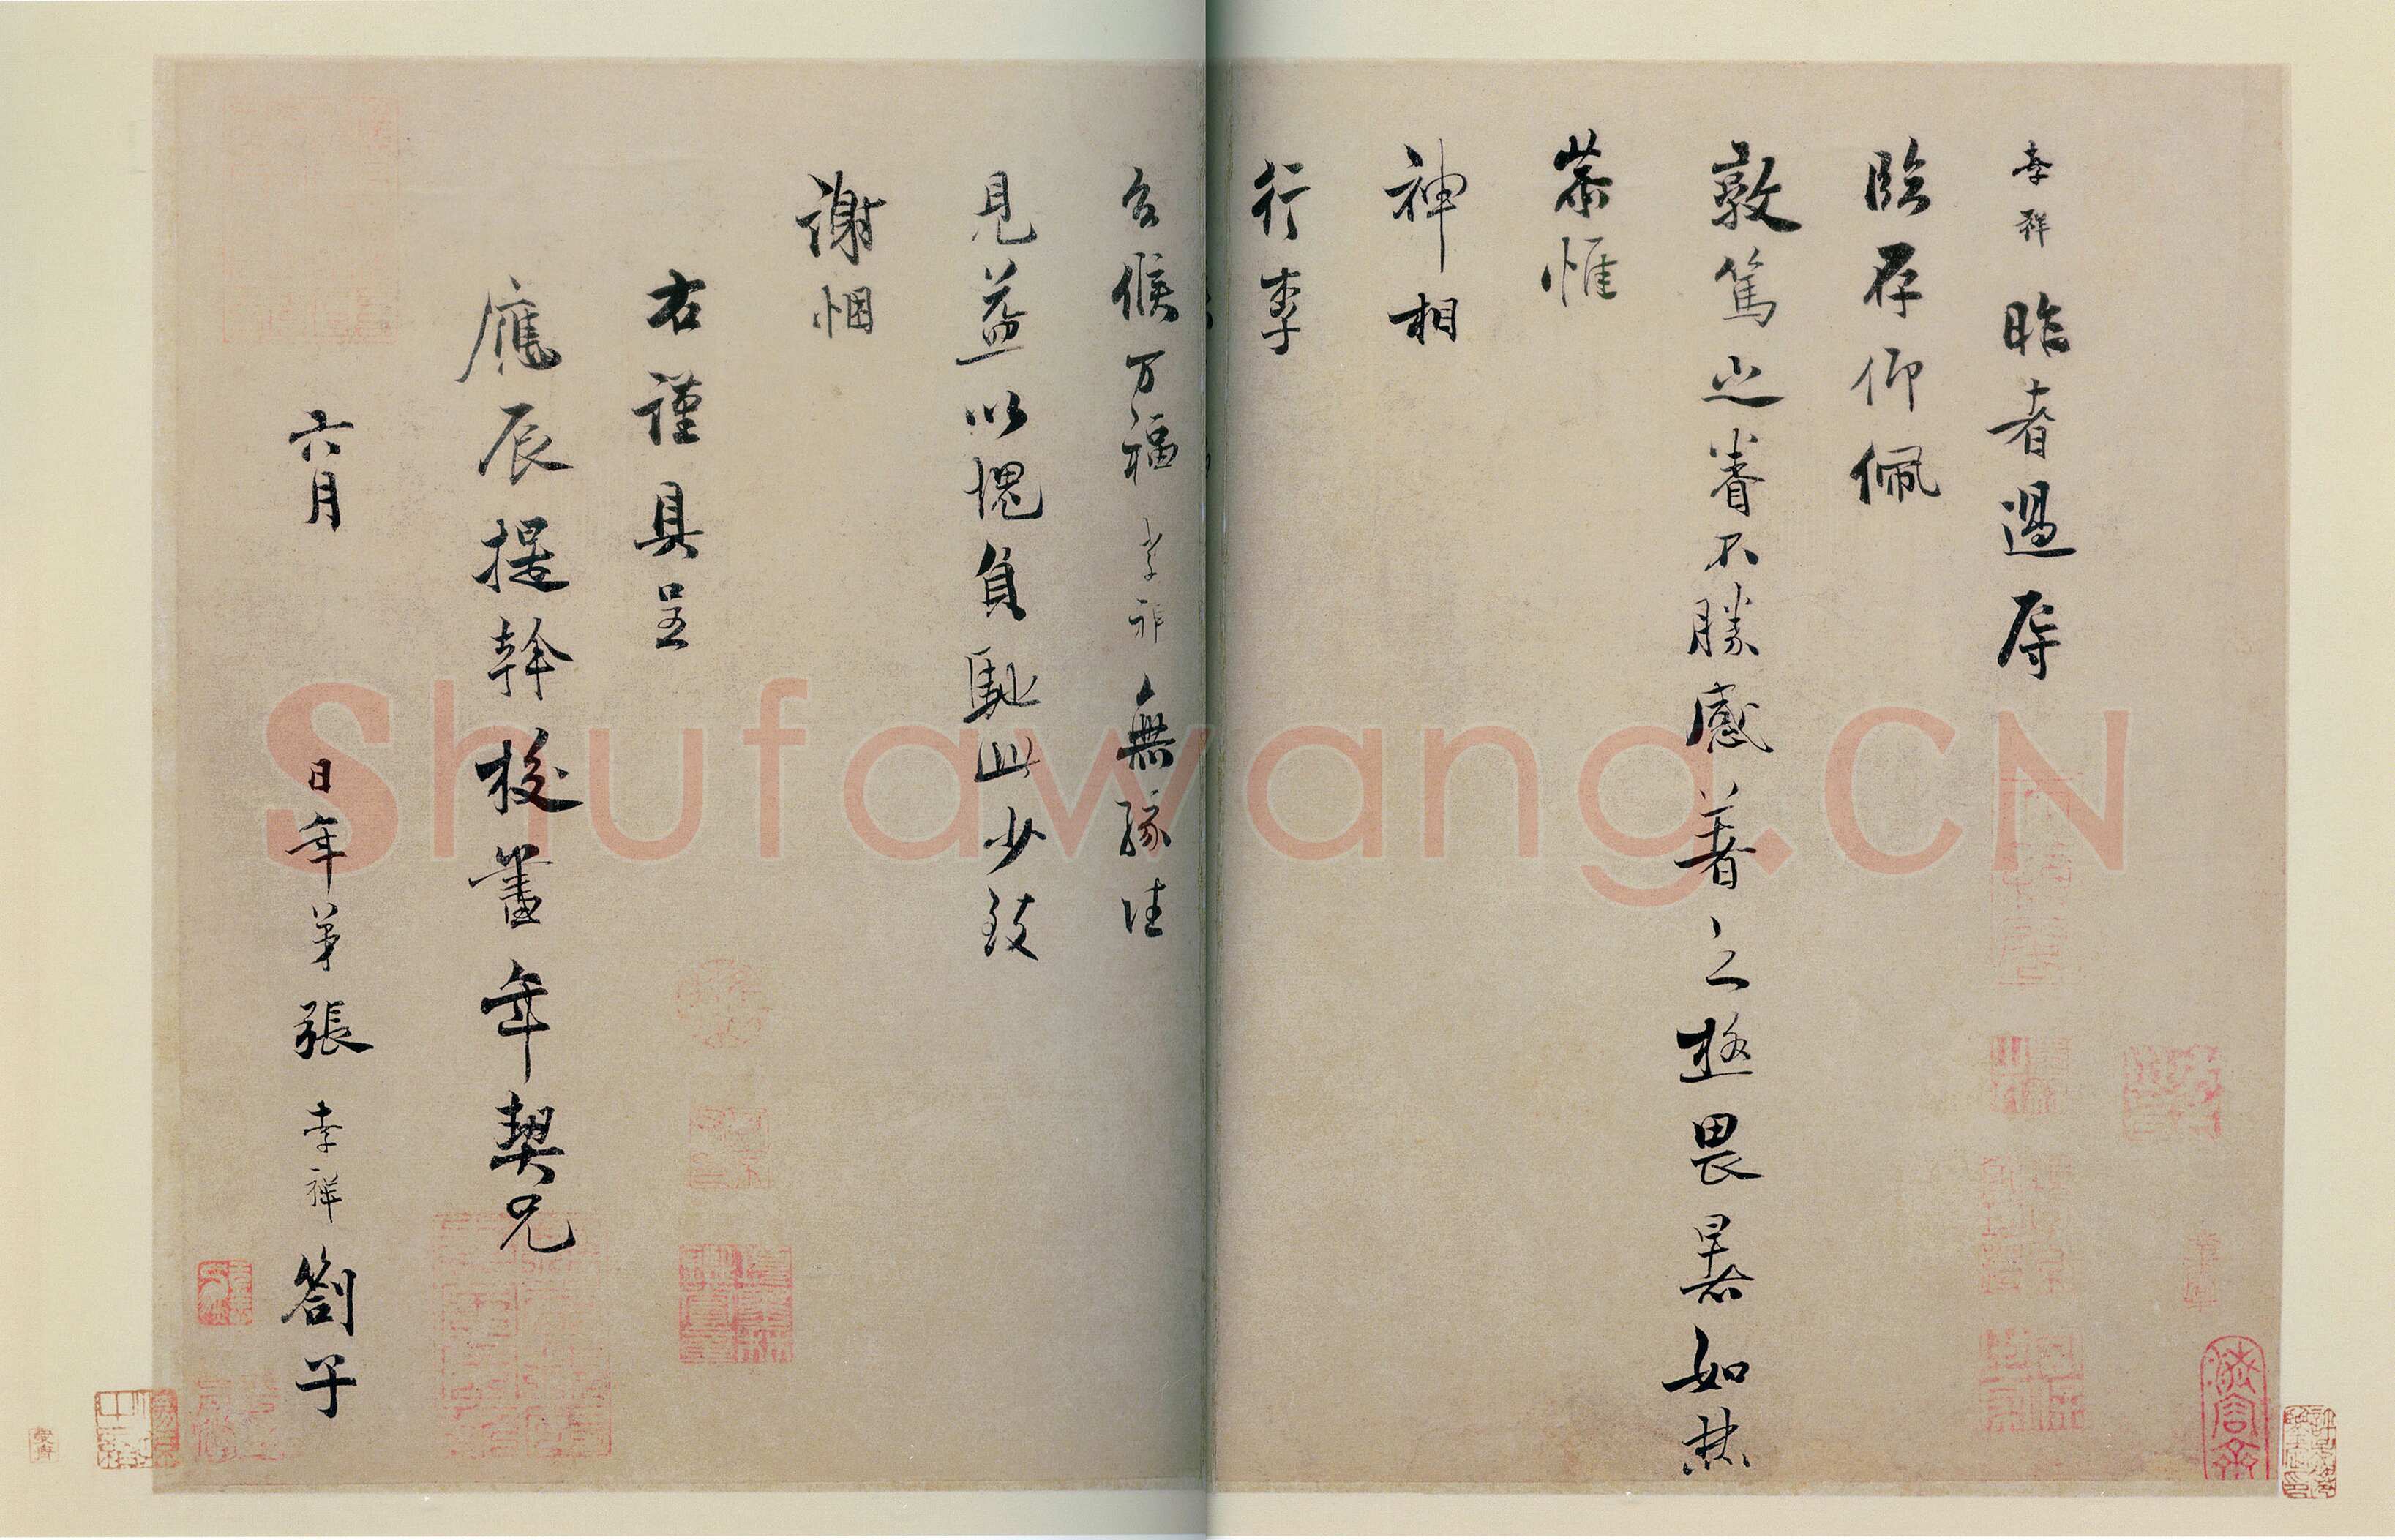 孝祥昨者過辱
臨存仰佩
敦篤之眷不勝感著之極畏暑如焚
恭惟
神相
行李
台候万福孝祥無緣往
見益以愧負馳此少致
謝悃
右謹具呈
應辰提幹校書年契兄
六月 日年弟張孝祥劄子
Shufawang.CN